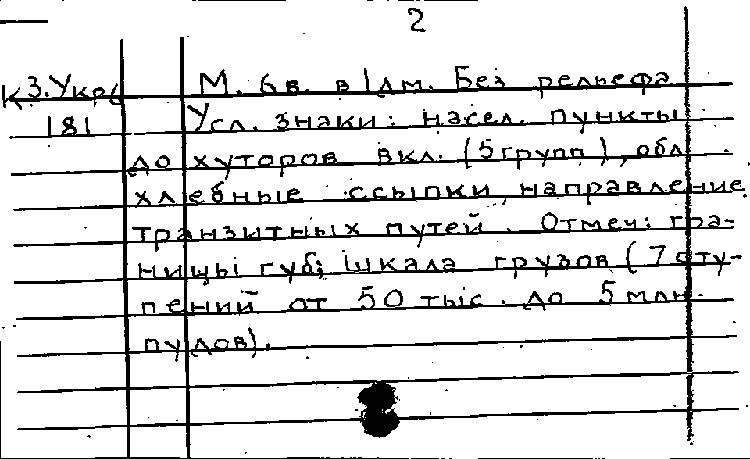 2
К3.Укр М. 6в. в 1дм. Без рельефа
181 Усл. знаки: насел. пункты
до хуторов вкл. (5групп), обл.
хлебные ссыпки, направление
транзитных путей. Отмеч: гра-
ницы губ; шкала грузов (7 сту-
пений от 50 тыс. до 5 млн.
пудов).